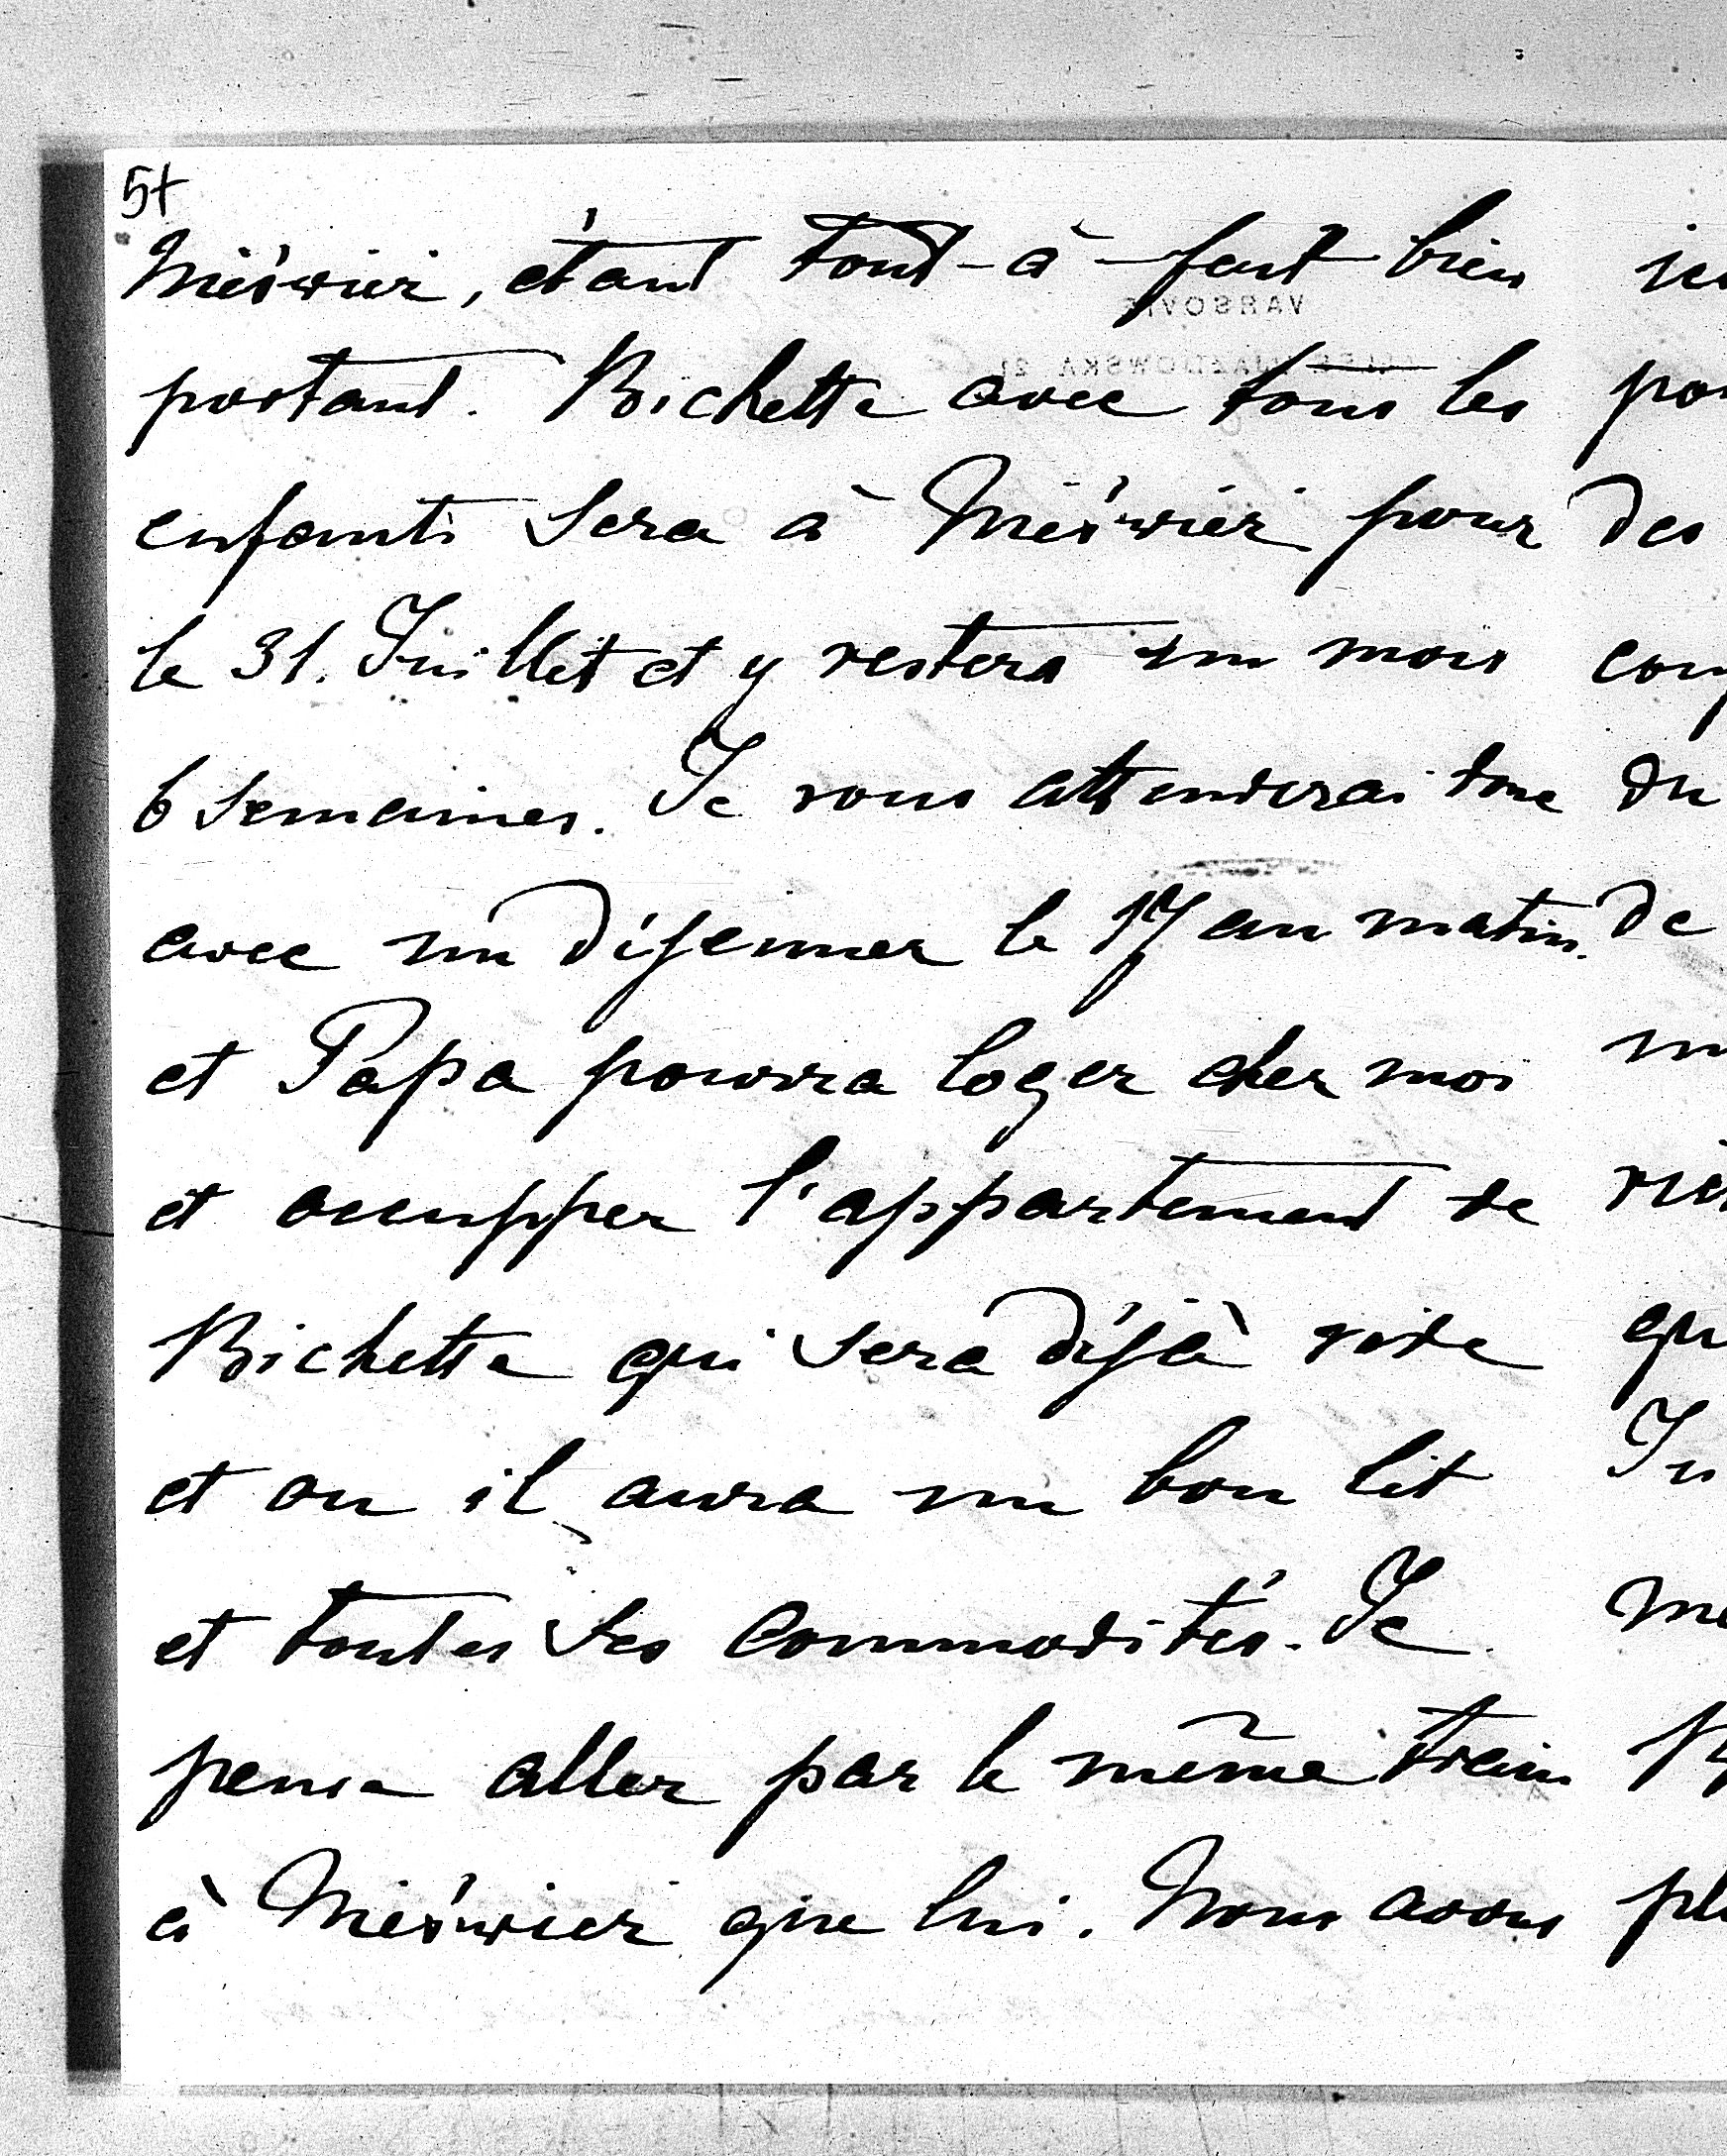 57
Nieświez, étant tout-à-fait bien
portant. Bichette avec tous les
enfants sera à Nieświez pour
le 31. Juillet et y restera un mois
6 semaines. Je vous attenderai donc
avec un déjenner le 17 au matin.
et Papa pouvra loger chez moi
et occupper l'appartement de
Bichette qui sera déjà vide
et ou il aura un bon lit
et toutes ses commodités. Je
pense aller par le même train
à Nieświez que lui. Nous avons
des
du
de
VARSOVIE